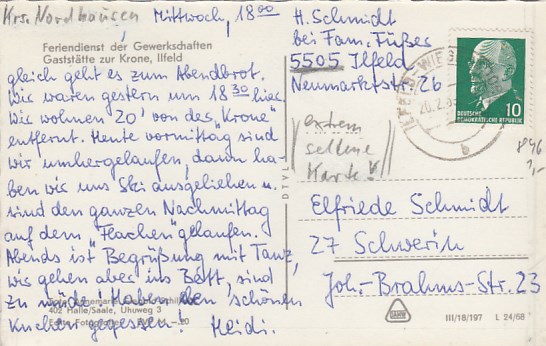 Krs. Nordhausen
Mittwoch, 18⁰⁰
Feriendienst der Gewerkschaften
Gaststätte zur Krone, Ilfeld
gleich geht es zum Abendbrot.
Wir waren gestern um 18³⁰ hier.
Wir wohnen 20' von der „Krone"
entfernt. Heute vormittag sind
wir umhergelaufen, dann ha-
ben wir uns Ski ausgeliehen u.
sind den ganzen Nachmittag
auf dem „Flachen" gelaufen.
Abends ist Begrüßung mit Tanz,
wir gehen aber ins Bett, sind
zu müde. Haben den schönen
402 Halle/Saale, Uhuweg 3
Kuchen gegessen! Heidi.
DTVL
H. Schmidt
bei Fam. Füßer
5505 Ilfeld
Neumarktstr. 26
extrem
seltene
Karte!!
20.2.
b
10
DEUTSCHE
DEMOKRATISCHE REPUBLIK
Elfriede Schmidt
27 Schwerin
Joh.-Brahms-Str. 23
III/18/197 L 24/68